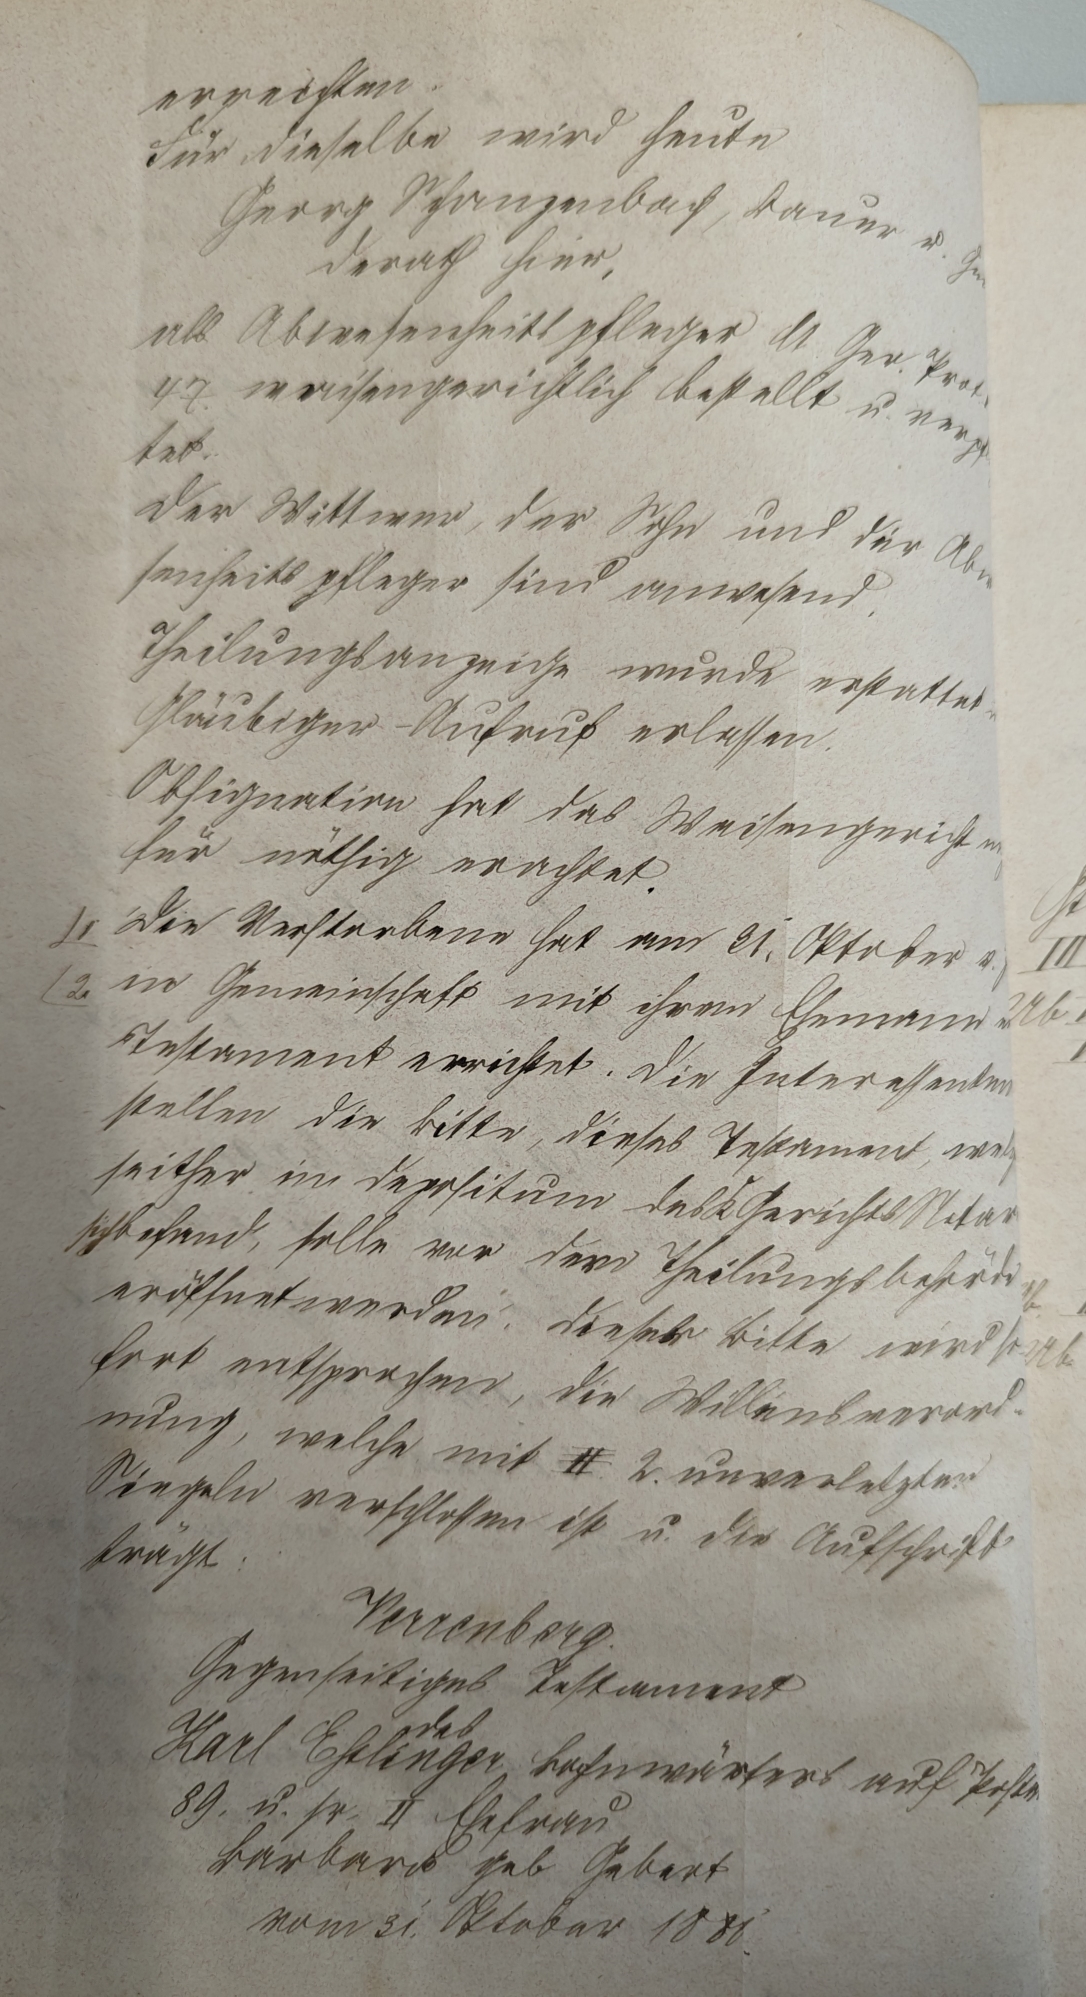 erreichten.
Für dieselbe wird heute
Georg Schanzenbach, Bauer u. Gem
derath hier,
als Abwesenheitspfleger lt Ger. Prot.
47. waisengerichtlich bestellt u. verpf
tet.
Der Wittwer, der Sohn und der Abw
senheitspfleger sind anwesend.
Theilungsanzeige wurde erstattet
Gläubiger-Aufruf erlassen.
Obsignation hat das Waisengericht n
für nöthig erachtet.
Die Verstorbene hat am 31. Oktober v.
2. in Gemeinschaft mit ihrem Ehemann
Testament errichtet. Die Interessenten
stellen die Bitte, dieses Testament, welch
seither im Depositum des K Gerichts Notar
sich befand, solle vor der Theilungsbehörde
eröffnet werden. Dieser Bitte wird so
fort entsprochen, die Willensverord-
nung, welche mit 2. unverletzten
Siegeln verschlossen ist u. die Aufschrift
trägt:
Verrenberg.
Gegenseitiges Testament
des
Karl Ehlinger, Bahnwärters auf Posten
89. u. sr. II Ehefrau
Barbara geb Gebert
vom 31. Oktober 1881.
III